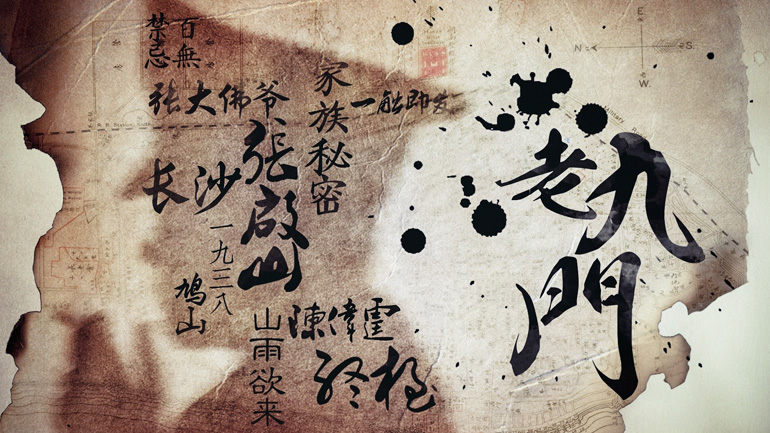 老九門
百無
禁忌
张大佛爷
張啟山
家族秘密
一触即发
长沙
一九三八
鸠山
山雨欲来
陳偉霆
E
N
S
W